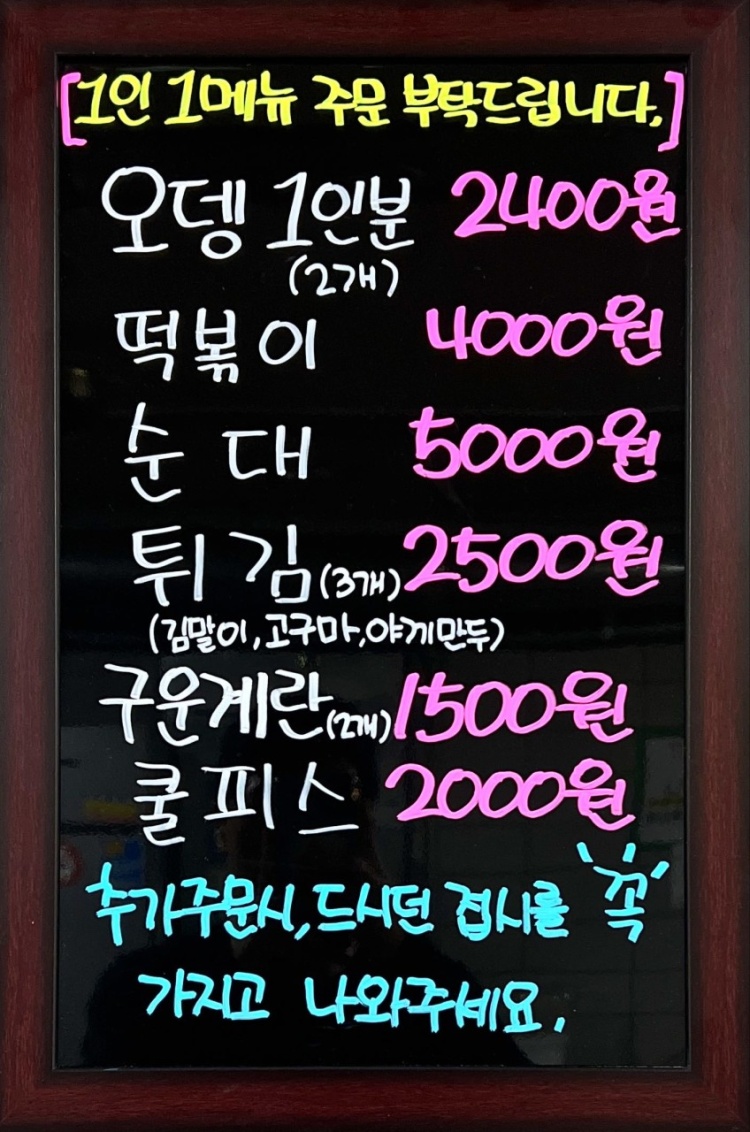 [1인 1메뉴 주문 부탁드립니다.]
오뎅 1인분 2400원
(2개)
떡볶이 4000원
순대 5000원
튀김(3개) 2500원
(김말이,고구마,야끼만두)
구운계란(2개) 1500원
쿨피스 2000원
추가주문시, 드시던 접시를 '꼭'
가지고 나와주세요.